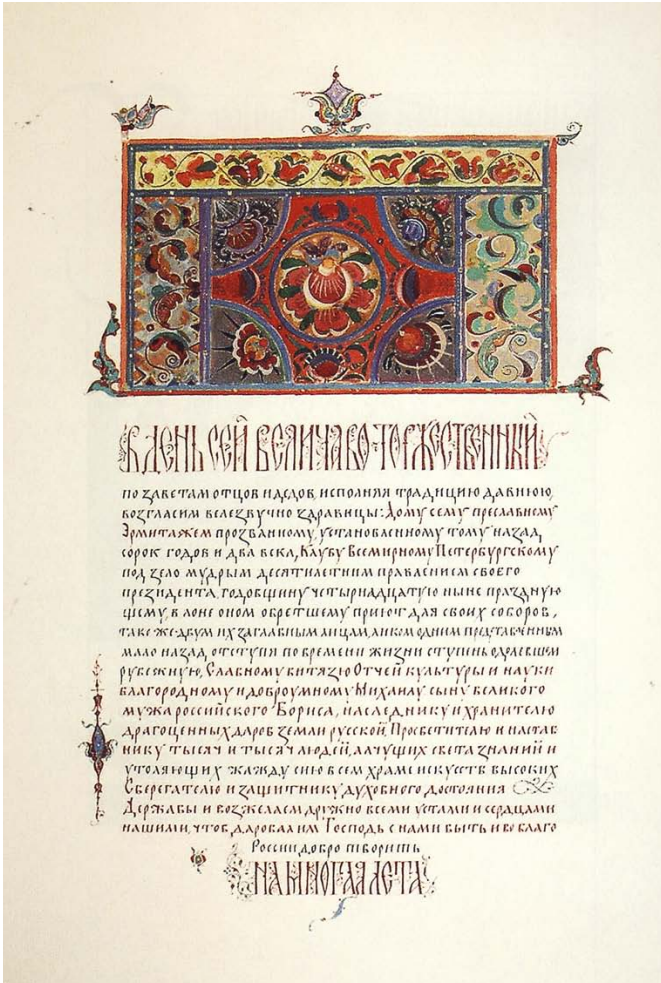 В ДЕНЬ СЕЙ ВЕЛИЧАВО-ТОРЖЕСТВЕННЫЙ
по заветам отцов и дедов, исполняя традицию давнюю,
возгласим велезвучно здравицы: Дому сему преславному
Эрмитажем прозванному, установленному тому назад
сорок годов и два века, Клубу Всемирному Петербургскому
под зело мудрым десятилетним правлением своего
президента, годовщину четырнадцатую ныне праздную
щему, в лоне оном обретшему приют для своих соборов,
такс же двум их заглавным лицам, ликом одним представленным
мало назад, отступя по времени жизни ступень одолевшем
рубежную, Славному витязю Отчей культуры и науки
благородному и доброумному Михаилу сыну великого
мужа российского Бориса, наследнику и хранителю
драгоценных даров земли русской, Просветителю и настав
нику тысяч и тысяч людей, алчущих света знаний и
утоляющих жажду сию в сем храме искусств высоких
Сберегателю и защитнику духовного достояния
Державы и возжелаем дружно всеми устами и сердцами
нашими, чтоб даровал им Господь с нами быть и во благо
России добро творить
НА МНОГАЯ ЛЕТА